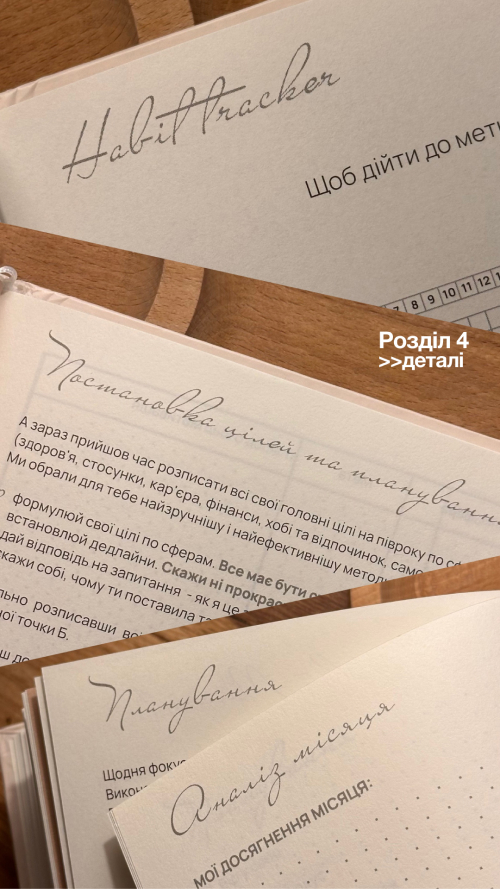 Habit tracker
Щоб дійти до мети
7 8 9 10 11 12
Розділ 4
>>деталі
Постановка цілей та планування
А зараз прийшов час розписати всі свої головні цілі на півроку по
(здоров'я, стосунки, кар'єра, фінанси, хобі та відпочинок, само
Ми обрали для тебе найзручнішу і найефективнішу
формулюй свої цілі по сферам. Все має бути
встановлюй дедлайни. Скажи ні
дай відповідь на запитання - як я це
скажи собі, чому ти поставила
розписавши
точки Б.
Планування
Щодня
Аналіз місяця
МОЇ ДОСЯГНЕННЯ МІСЯЦЯ: